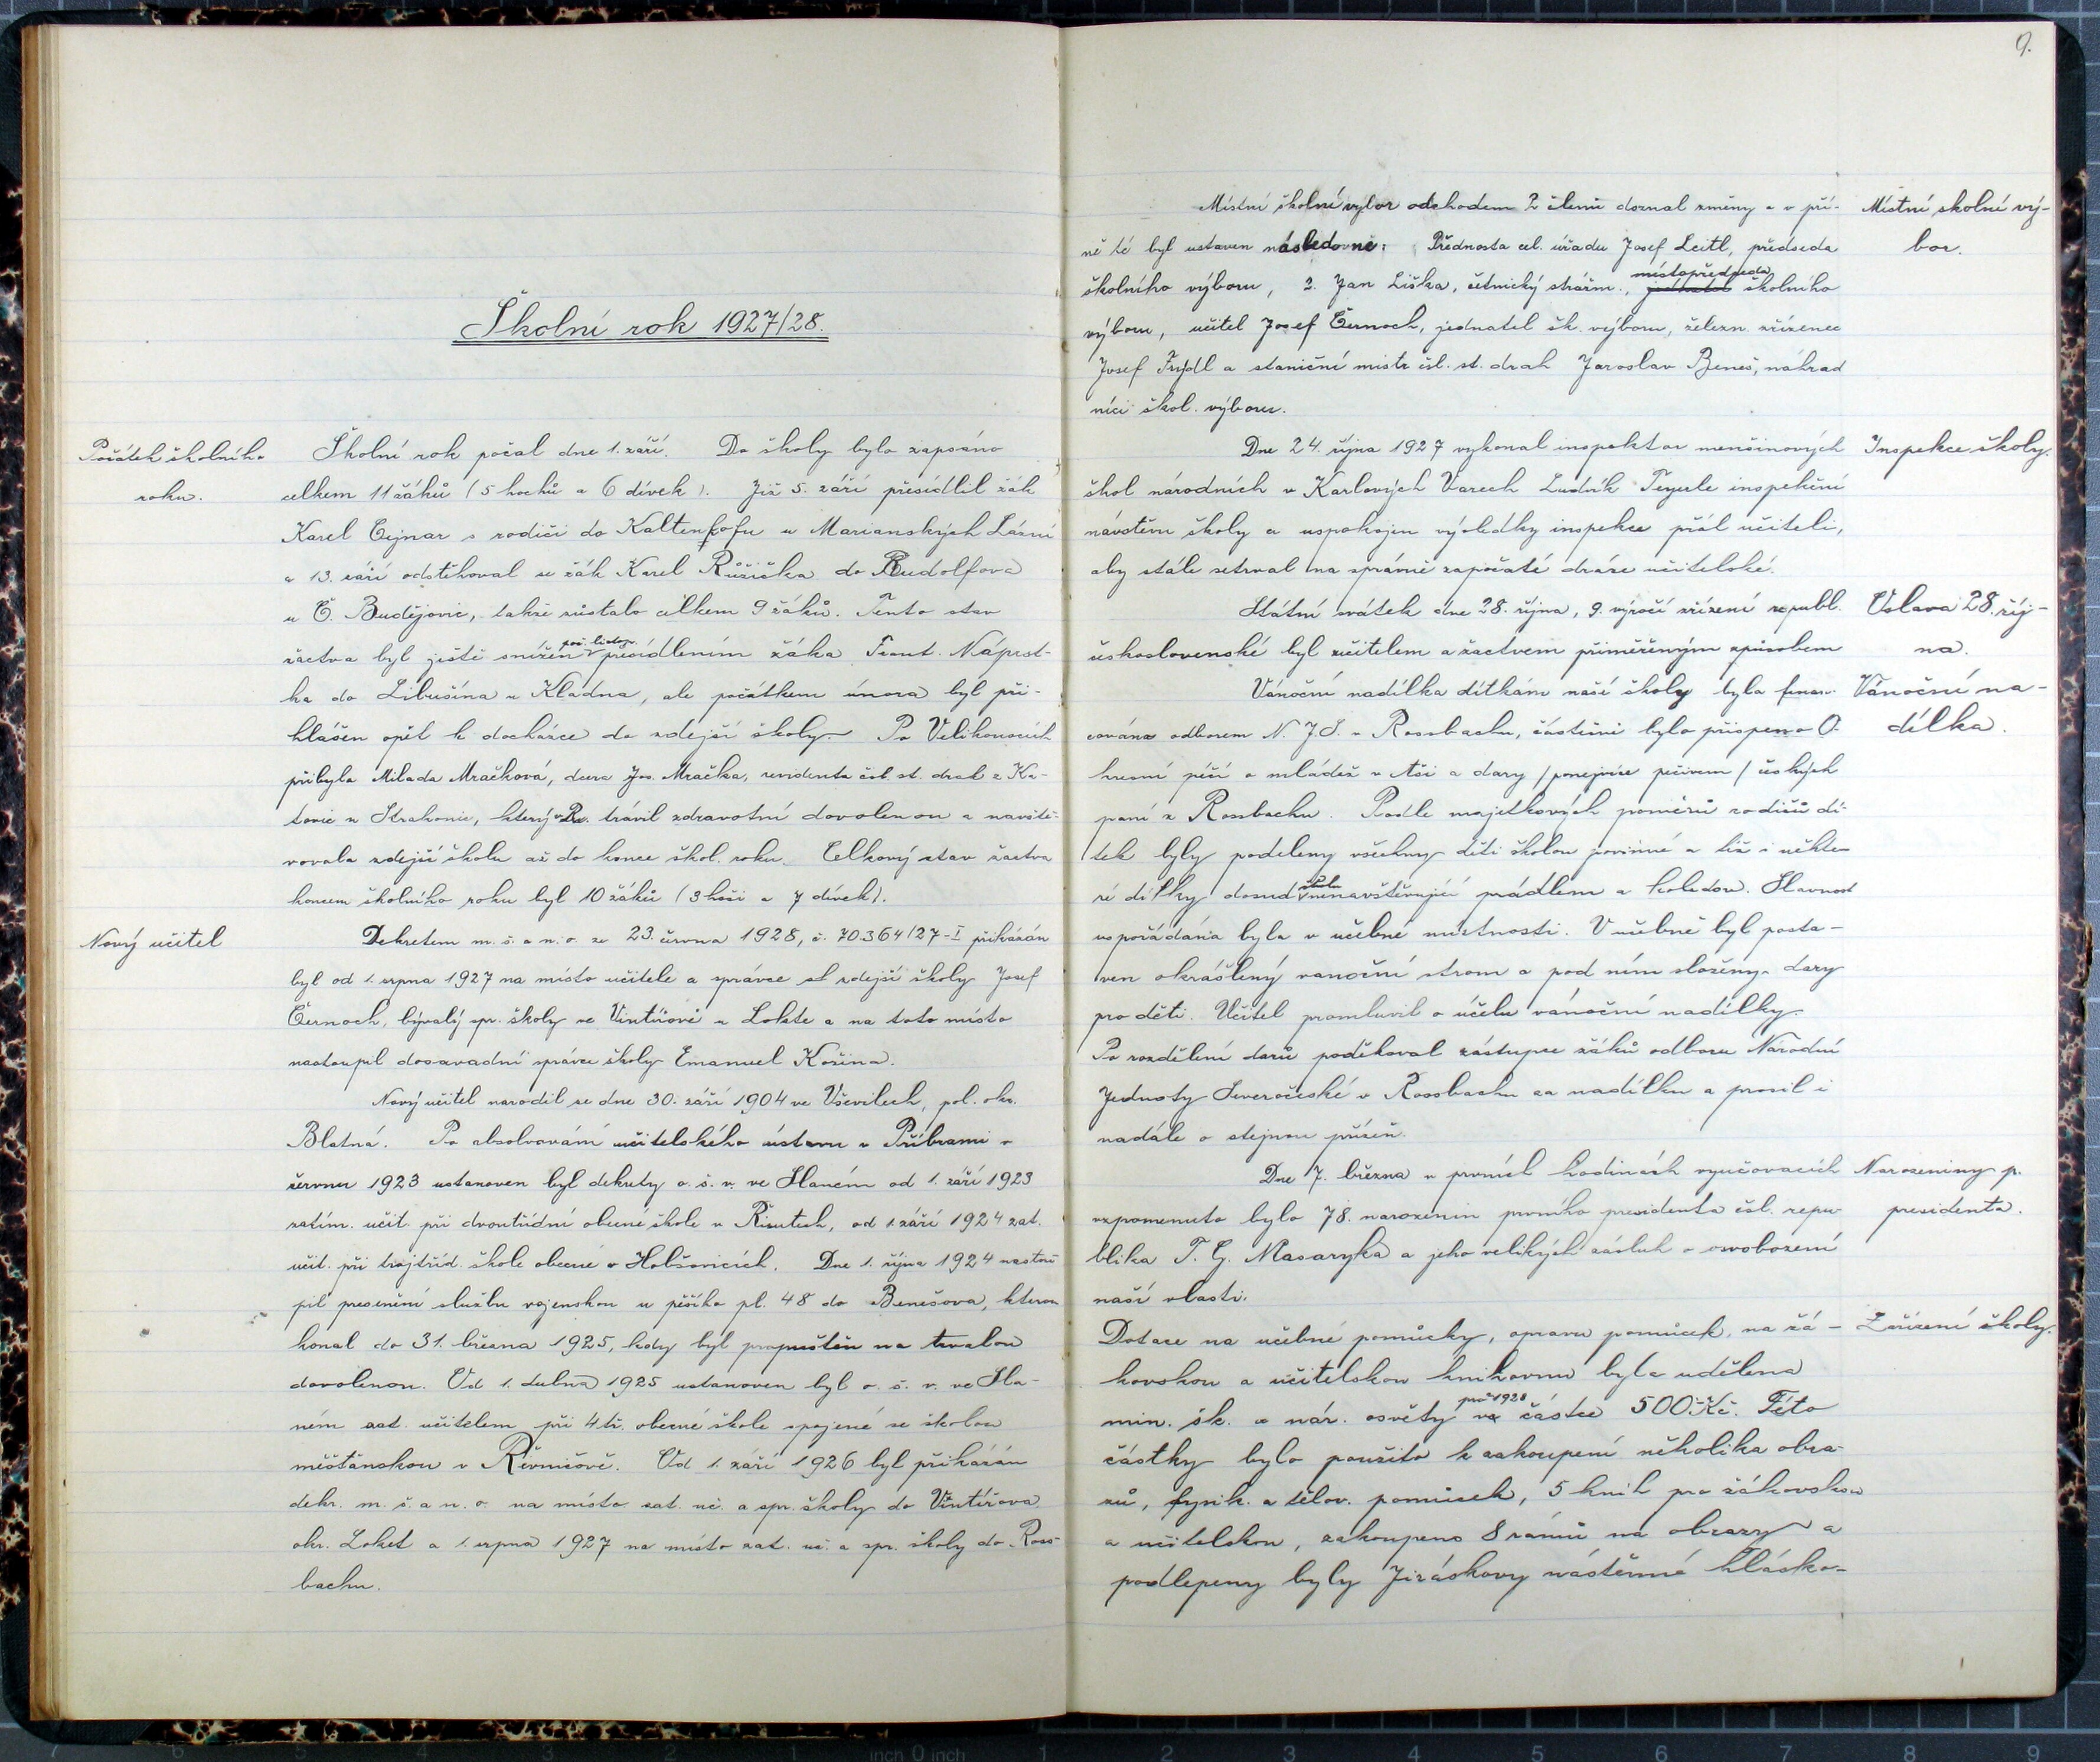 Školní rok 1927/28.
Počátek školního
roku.
Školní rok počal dne 1. září. Do školy bylo zapsáno
celkem 11 žáků (5 hochů a 6 dívek). Již 5. září přesídlil žák
Karel Cejnar s rodiči do Kaltenhofu u Marianských Lázní
a 13. září odstěhoval se žák Karel Růžička do Rudolfova
u Č. Budějovic, takže zůstalo celkem 9 žáků. Tento stav
žactva byl ještě snížen poč. listop. přesídlením žáka Frant. Náprst-
ka do Libušína u Kladna, ale počátkem února byl při-
hlášen opět k docházce do zdejší školy. Po Velikonocích
přibyla Milada Mračková, dcera Jos. Mračka, revidenta čsl. st. drah z Ka-
tovic u Strakonic, který v R. trávil zdravotní dovolenou a navště-
vovala zdejší školu až do konce škol. roku. Celkový stav žactva
koncem školního roku byl 10 žáků (3 hoši a 7 dívek).
Nový učitel
Dekretem m. š. a n. o. ze 23. června 1928, č. 70.364/27-I přikázán
byl od 1. srpna 1927 na místo učitele a správce zdejší školy Josef
Černoch, bývalý spr. školy ve Vintířově u Lokte a na toto místo
nastoupil dosavadní správce školy Emanuel Kožina.
Nový učitel narodil se dne 30. září 1904 ve Vševilech, pol. okr.
Blatná. Po absolvování učitelského ústavu v Příbrami v
červnu 1923 ustanoven byl dekrety o. š. v. ve Slaném od 1. září 1923
zatím. učit. při dvoutřídní obecné škole v Řisutech, od 1. září 1924 zat.
učit. při trojtříd. škole obecné v Hobšovicích. Dne 1. října 1924 nastou-
pil presenční službu vojenskou u pěšího pl. 48 do Benešova, kterou
konal do 31. března 1925, kdy byl propuštěn na trvalou
dovolenou. Od 1. dubna 1925 ustanoven byl o. š. v. ve Sla-
ném zat. učitelem při 4tř. obecné škole spojené se školou
měšťanskou v Řevničově. Od 1. září 1926 byl přikázán
dekr. m. š. a n. o. na místo zat. uč. a spr. školy do Vintířova
okr. Loket a 1. srpna 1927 na místo zat. uč. a spr. školy do Ross-
bachu.
9.
Místní školní výbor odchodem 2 členů doznal změny a v pří-
ně té byl ustaven následovně: Přednosta cel. úřadu Josef Leitl, předseda
školního výboru, 2. Jan Liška, četnický strážm., místopředseda jednatel školního
výboru, učitel Josef Černoch, jednatel šk. výboru, železn. zřízenec
Josef Frýdl a staniční mistr čsl. st. drah Jaroslav Beneš, náhrad
níci škol. výboru.
Místní školní vý-
bor.
Dne 24. října 1927 vykonal inspektor menšinových
škol národních v Karlových Varech Ludvík inspekční
návštěvu školy a uspokojen výsledky inspekce přál učiteli,
aby stále setrval na správně započaté dráze učitelské.
Inspekce školy.
Státní svátek dne 28. října, 9. výročí zřízení republ.
československé byl učitelem a žactvem přiměřeným způsobem
Oslava 28. říj-
na.
Vánoční nadílka dítkám naší školy byla finan-
cována odborem N. J. S. v Rossbachu, částečně bylo přispěno O-
kresní péčí o mládež v Aši a dary /ponejvíce pečivem/ českých
paní z Rossbachu. Podle majetkových poměrů rodičů dí-
tek byly poděleny všechny děti školou povinné a též i někte-
ré dítky dosud školu nenavštěvující prádlem a koledou. Slavnost
uspořádána byla v učebné místnosti. V učebně byl posta-
ven okrášlený vánoční strom a pod ním složeny dary
pro děti. Učitel promluvil o účelu vánoční nadílky.
Po rozdělení darů poděkoval zástupce žáků odboru Národní
Jednoty Severočeské v Rossbachu za nadílku a prosil i
nadále o stejnou přízeň.
Vánoční na-
dílka.
Dne 7. března v prvních hodinách vyučovacích
vzpomenuto bylo 78. narozenin prvního presidenta čsl. repu-
blika T. G. Masaryka a jeho velikých zásluh o osvobození
naší vlasti.
Narozeniny p.
presidenta.
Dotace na učebné pomůcky, opravu pomůcek, na žá-
kovskou a učitelskou knihovnu byla udělena
min. šk. a nár. osvěty pro 1928 v částce 500 Kč. Této
částky bylo použito k zakoupení několika obra-
zů, fysik. a tělov. pomůcek, 5 knih pro žákovskou
a učitelskou, zakoupeno 8 rámů na obrazy a
podlepeny byly Jiráskovy nástěnné hlásko-
Zařízení školy.